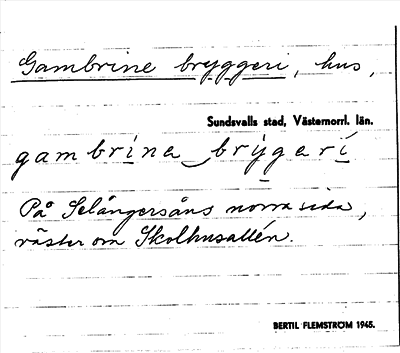 Gambrine bryggeri, hus,
Sundsvalls stad, Västernorrl. län.
gambrina brygeri
På Selångersåns norra sida,
väster om Skolhusallén.
BERTIL FLEMSTRÖM 1945.